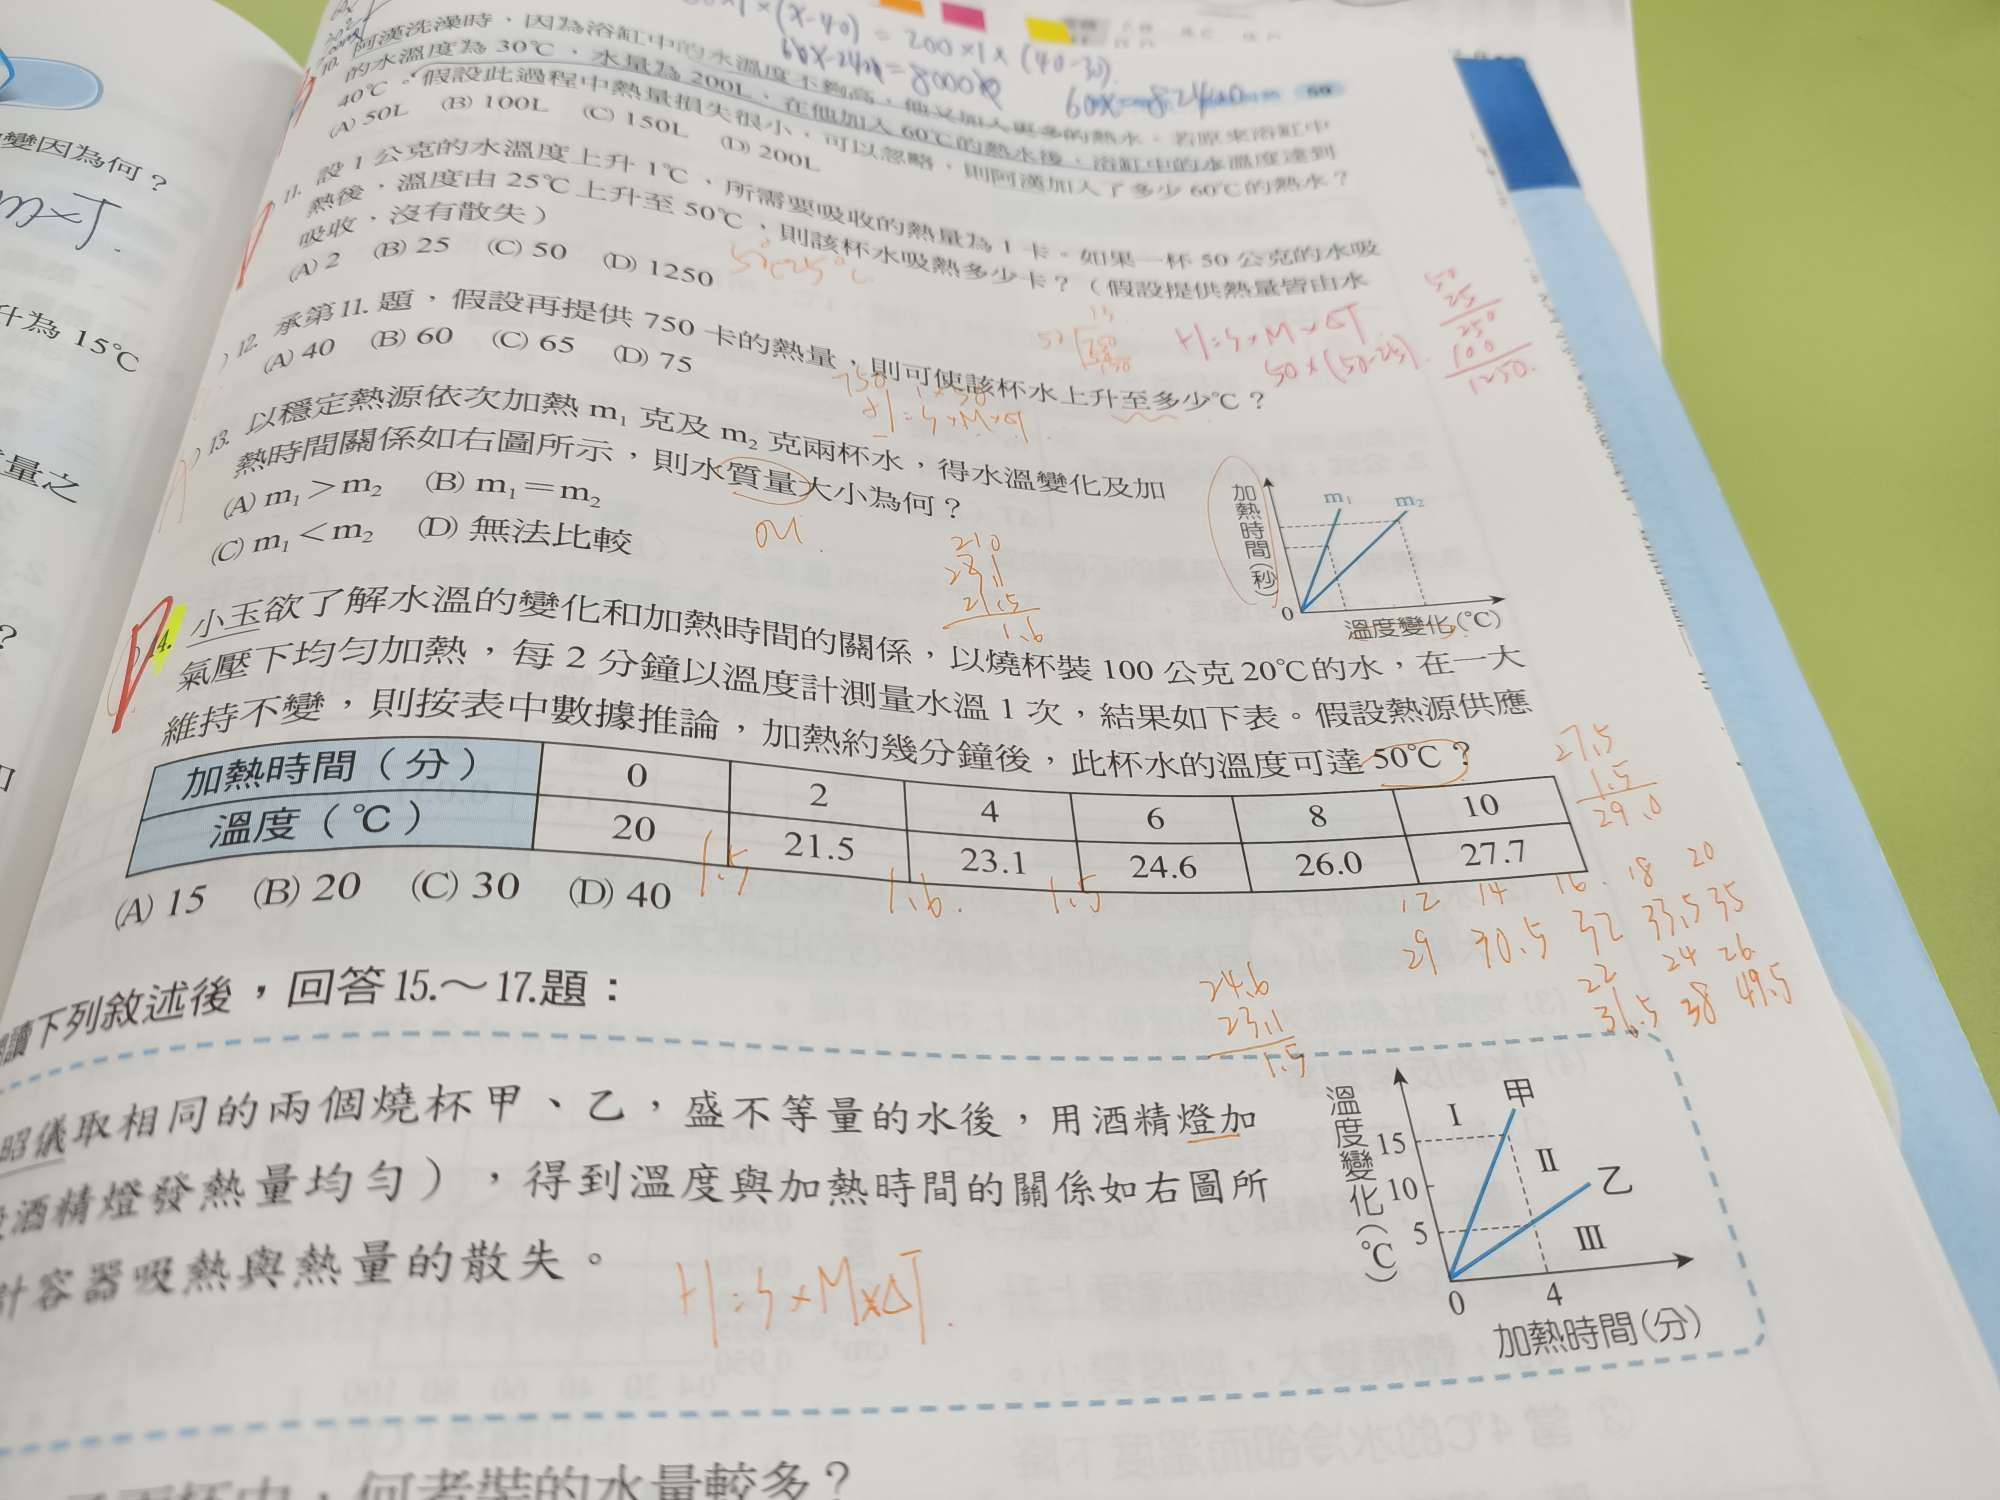 ×1×(x-40) = 200×1×(40-30)
60x-2400=8000
10. 阿漢洗澡時，因為浴缸中的水溫度不夠高，他又加入更多的熱水。若原來浴缸中
的水溫度為 30℃，水量為 200L，在他加入 60℃的熱水後，浴缸中的水溫度達到
40℃。假設此過程中熱量損失很小，可以忽略，則阿漢加入了多少 60℃的熱水？
(A) 50L (B) 100L (C) 150L (D) 200L
11. 設 1 公克的水溫度上升 1℃，所需要吸收的熱量為 1 卡。如果一杯 50 公克的水吸
熱後，溫度由 25℃上升至 50℃，則該杯水吸熱多少卡？（假設提供熱量皆由水
吸收，沒有散失）
(A) 2 (B) 25 (C) 50 (D) 1250
50
25
250
100
1250.
H=S×M×ΔT
50×(50-25).
12. 承第11.題，假設再提供 750 卡的熱量，則可使該杯水上升至多少℃？
(A) 40 (B) 60 (C) 65 (D) 75
750
H=S×M×ΔT
13. 以穩定熱源依次加熱 m₁ 克及 m₂ 克兩杯水，得水溫變化及加
熱時間關係如右圖所示，則水質量大小為何？
(A) m₁＞m₂ (B) m₁＝m₂
(C) m₁＜m₂ (D) 無法比較
加熱時間(秒)
m₁ m₂
0
溫度變化(℃)
21.0
23.1
21.5
1.6
14. 小玉欲了解水溫的變化和加熱時間的關係，以燒杯裝 100 公克 20℃的水，在一大
氣壓下均勻加熱，每 2 分鐘以溫度計測量水溫 1 次，結果如下表。假設熱源供應
維持不變，則按表中數據推論，加熱約幾分鐘後，此杯水的溫度可達 50℃？
加熱時間（分） 0 2 4 6 8 10
溫度（℃） 20 21.5 23.1 24.6 26.0 27.7
1.5 1.6. 1.5
27.5
1.5
29.0
(A) 15 (B) 20 (C) 30 (D) 40
12 14 16. 18 20
29 30.5 32 33.5 35
22 24 26
36.5 38 49.5
24.6
23.1
1.5
讀下列敘述後，回答15.～17.題：
昭儀取相同的兩個燒杯甲、乙，盛不等量的水後，用酒精燈加
酒精燈發熱量均勻），得到溫度與加熱時間的關係如右圖所
計容器吸熱與熱量的散失。
H=S×M×ΔT.
溫度變化(℃)
甲
I
15
II
10
乙
5
III
0 4
加熱時間(分)
何者裝的水量較多？
變因為何？
m×T.
升為 15℃
量之
？